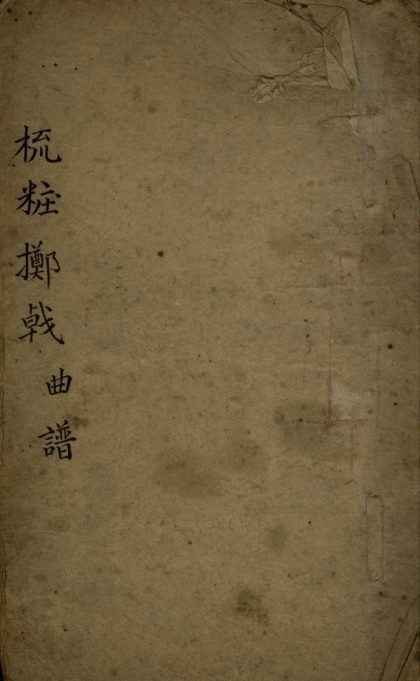 梳粧擲戟曲譜